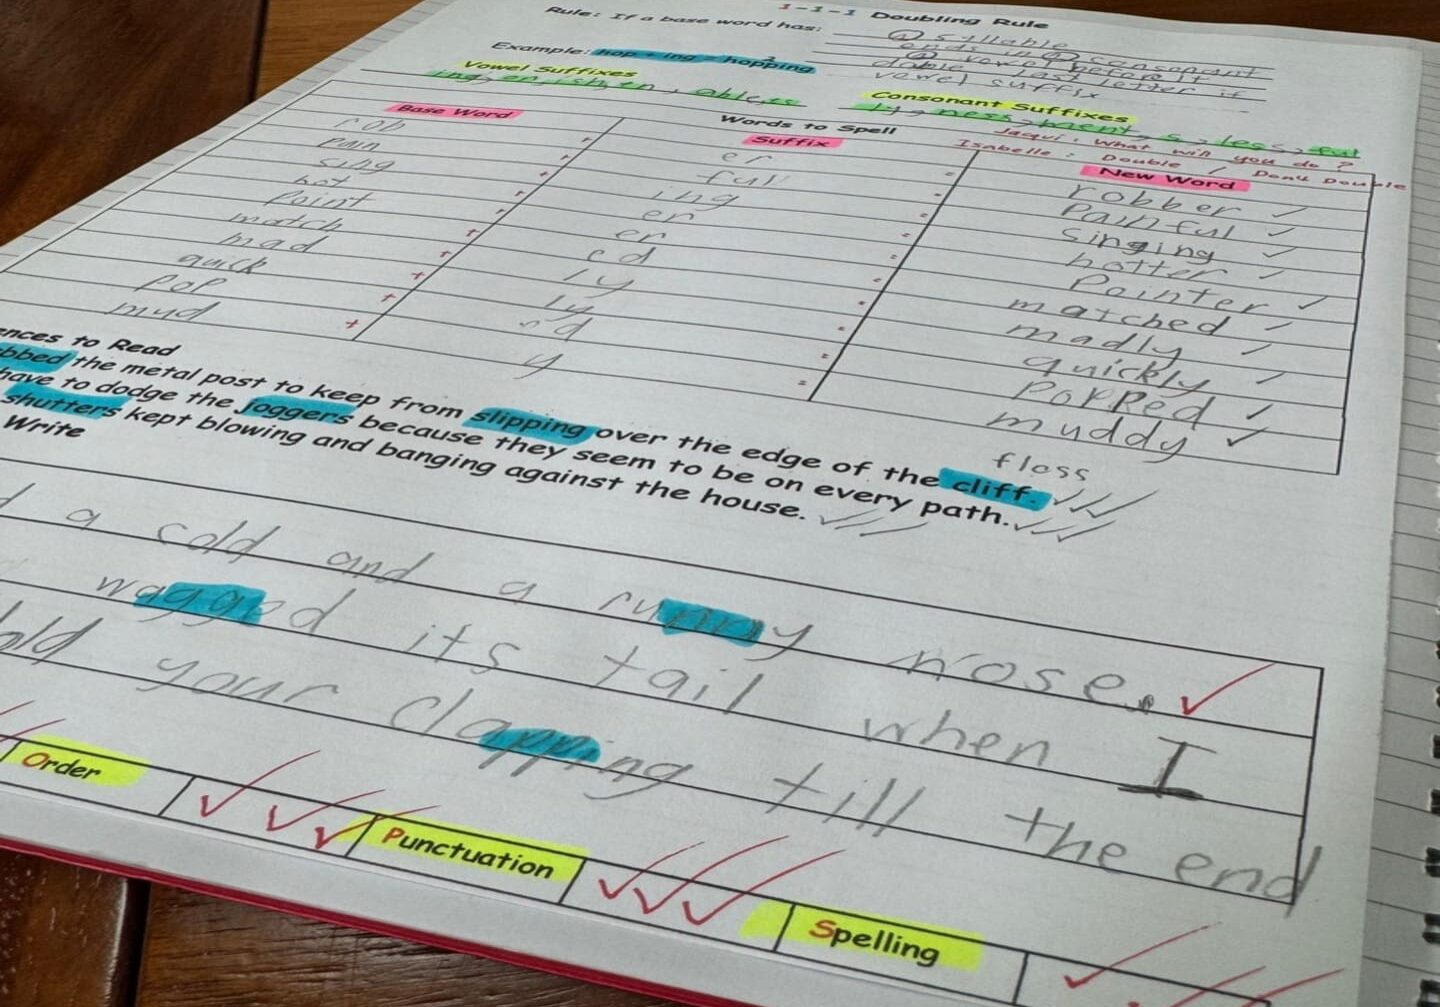 1-1-1 Doubling Rule
Rule: If a base word has: ① syllable
ends in ① consonant
① vowel before it
Example: hop + ing = hopping double last letter if
vowel suffix
Vowel Suffixes Consonant Suffixes
ing, er, ish, en, able, ly, ness, ment, s, less, ful
Words to Spell
Jaqui: What will you do?
Isabelle: Double / Don't Double
Base Word Suffix New Word
rob + er = robber ✓
pain + ful = painful ✓
sing + ing = singing ✓
hot + er = hotter ✓
point + er = pointer ✓
match + ed = matched ✓
mad + ly = madly ✓
quick + ly = quickly ✓
pop + = popped ✓
mud + y = muddy ✓
ences to Read floss
bbed the metal post to keep from slipping over the edge of the cliff. ✓✓✓
have to dodge the joggers because they seem to be on every path. ✓✓✓
shutters kept blowing and banging against the house. ✓✓✓
Write
d a cold and a runny nose. ✓
wagged its tail when I
old your clapping till the end
Order ✓✓✓ Punctuation ✓✓✓ Spelling ✓✓✓